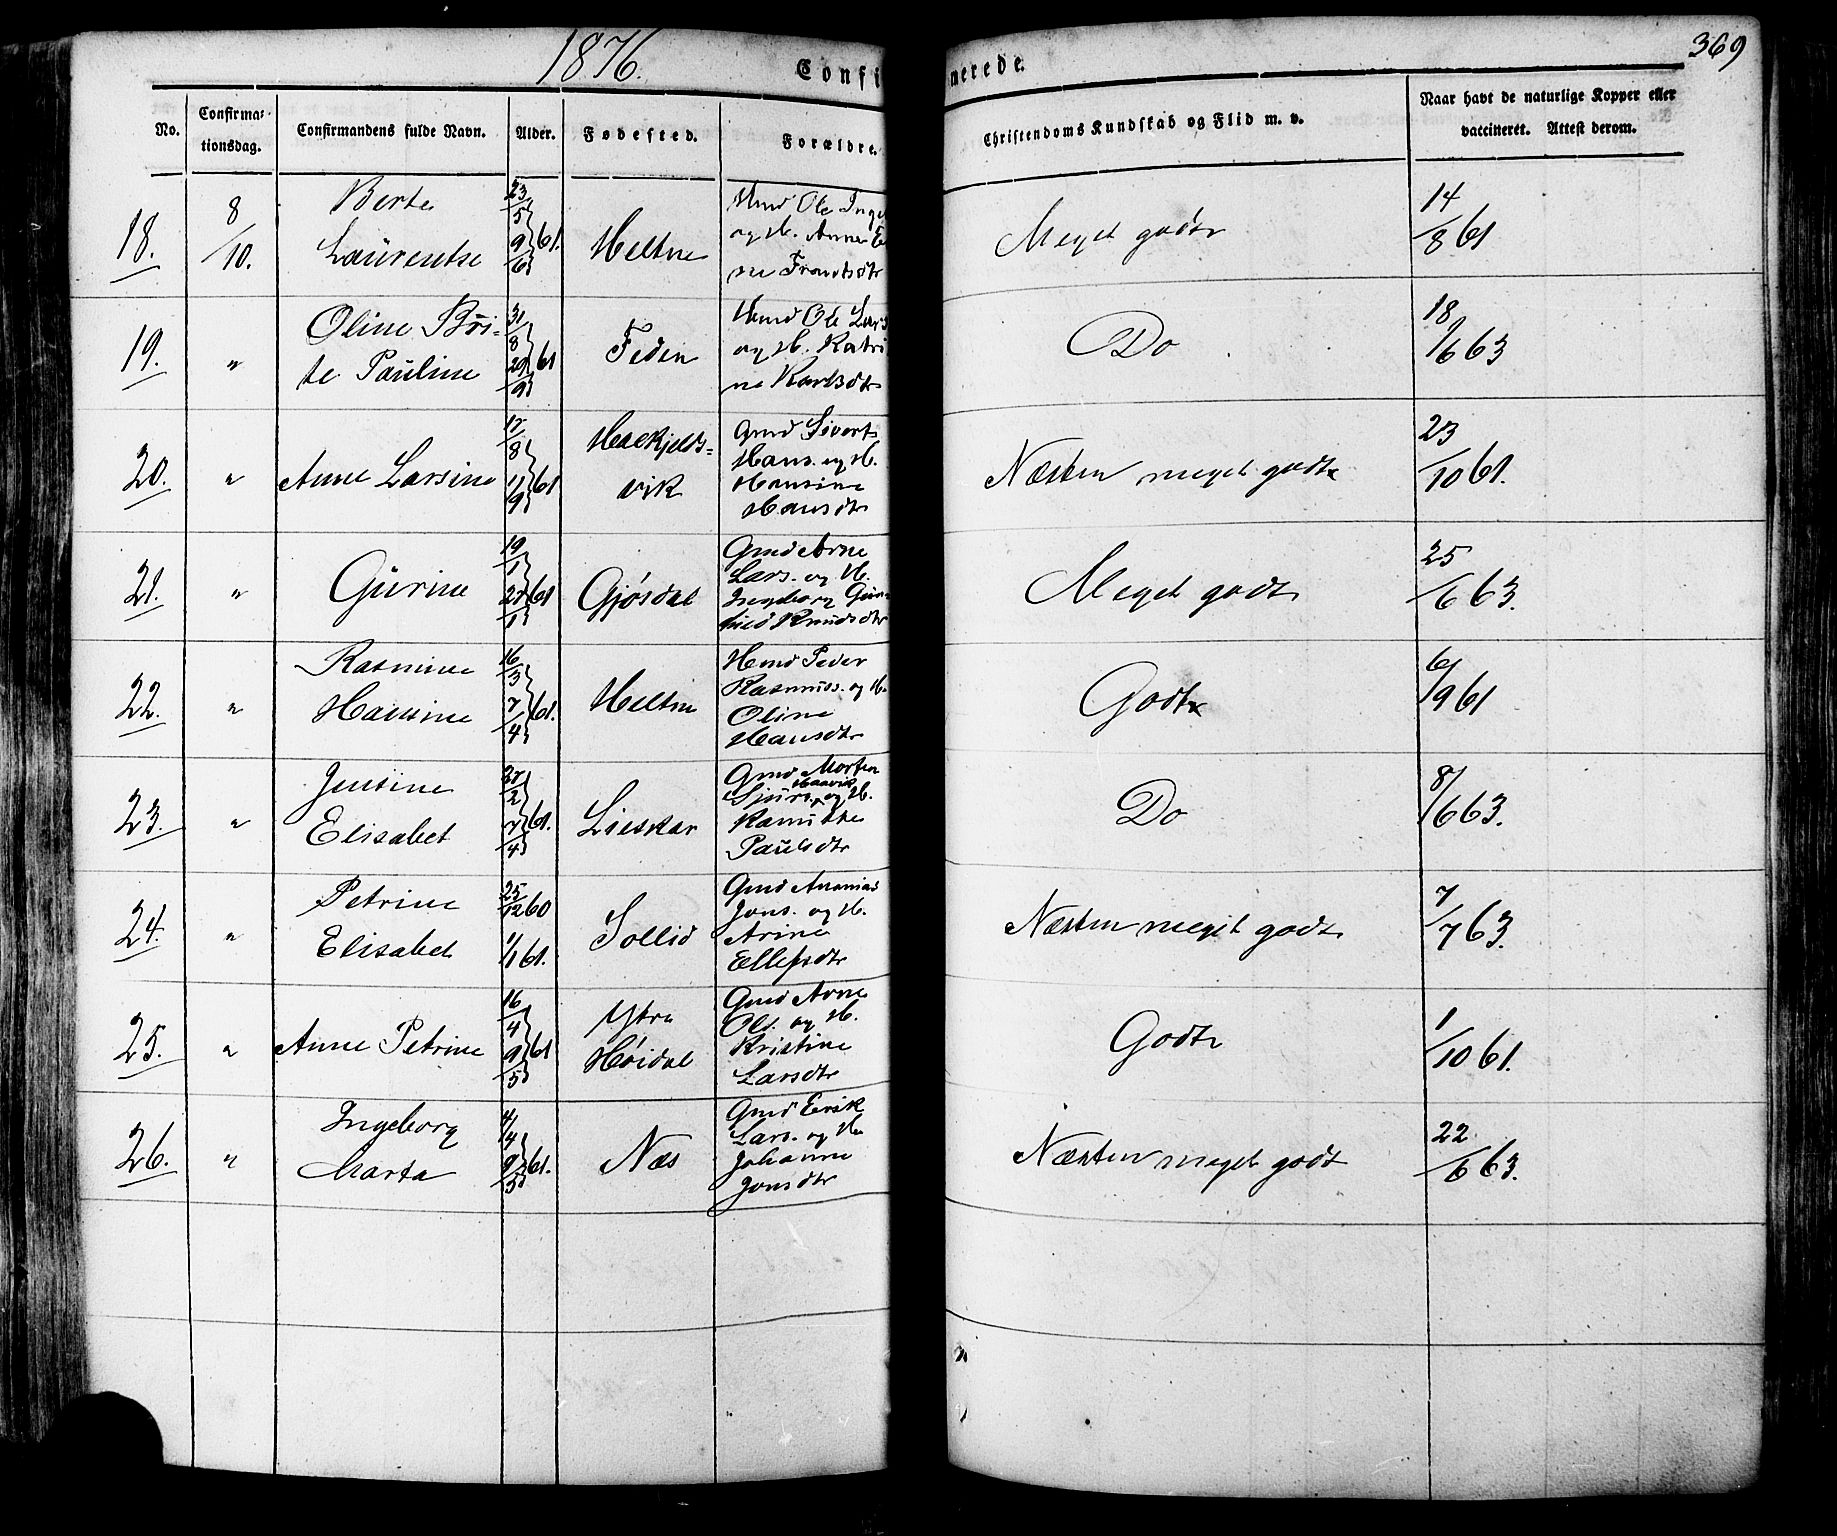 1876.
Confi
No.
Confirma-
tionsdag.
Confirmandens fulde Navn.
Alder.
Fødested.
Forældre.
18.
8/10.
Berte
Laurentse
23/5
9/6 61.
Heltne
Hmd Ole Inge
og H. Anne E
ne Frantsdtr
19.
"
Oline Bri-
te Pauline
31/8
29/9 61
Feden
Hmd Ole Lars
og H. Katri
ne Karlsdtr
20.
"
Anne Larsine
17/8
1/9 61
Haekjelds-
vik
Gmd Siverts
Hans. og H.
Hansine
Hansdtr
21.
"
Gurine
19/1
27/1 61
Gjøsdal
Gmd Arne
Lars. og H.
Ingeborg Gun
hild Knudsdtr
22.
"
Rasmine
Hansine
16/3
7/4 61.
Heltne
Hmd Peder
Rasmuss. og H.
Oline
Hansdtr
23.
"
Jensine
Elisabet
27/2
7/4 61.
Lieskar
Gmd Morten
Haavik
Sjurs. og H.
Paulsdtr
24.
"
Petrine
Elisabet
25/12 60
1/1 61.
Sollid
Gmd Ananias
Jons. og H.
Arine
Ellefsdtr
25.
"
Anne Petrine
16/4
9/5 61
Ytre
Høidal
Gmd Arne
Ols. og H.
Kristine
Larsdtr
26.
"
Ingeborg
Marta
4/4
9/5 61.
Næs
Gmd Erik
Lars. og H.
Johanne
Jonsdtr
369
merede.
Christendoms Kundskab og Flid m. v.
Naar havt de naturlige Kopper eller
vaccineret. Attest derom.
Meget godt
14/8 61
Do
18/6 63
Næsten meget godt
23/10 61.
Meget godt
25/6 63.
Godt
6/9 61
Do
8/6 63.
Næsten meget godt
7/7 63.
Godt
1/10 61.
Næsten meget godt
22/6 63.